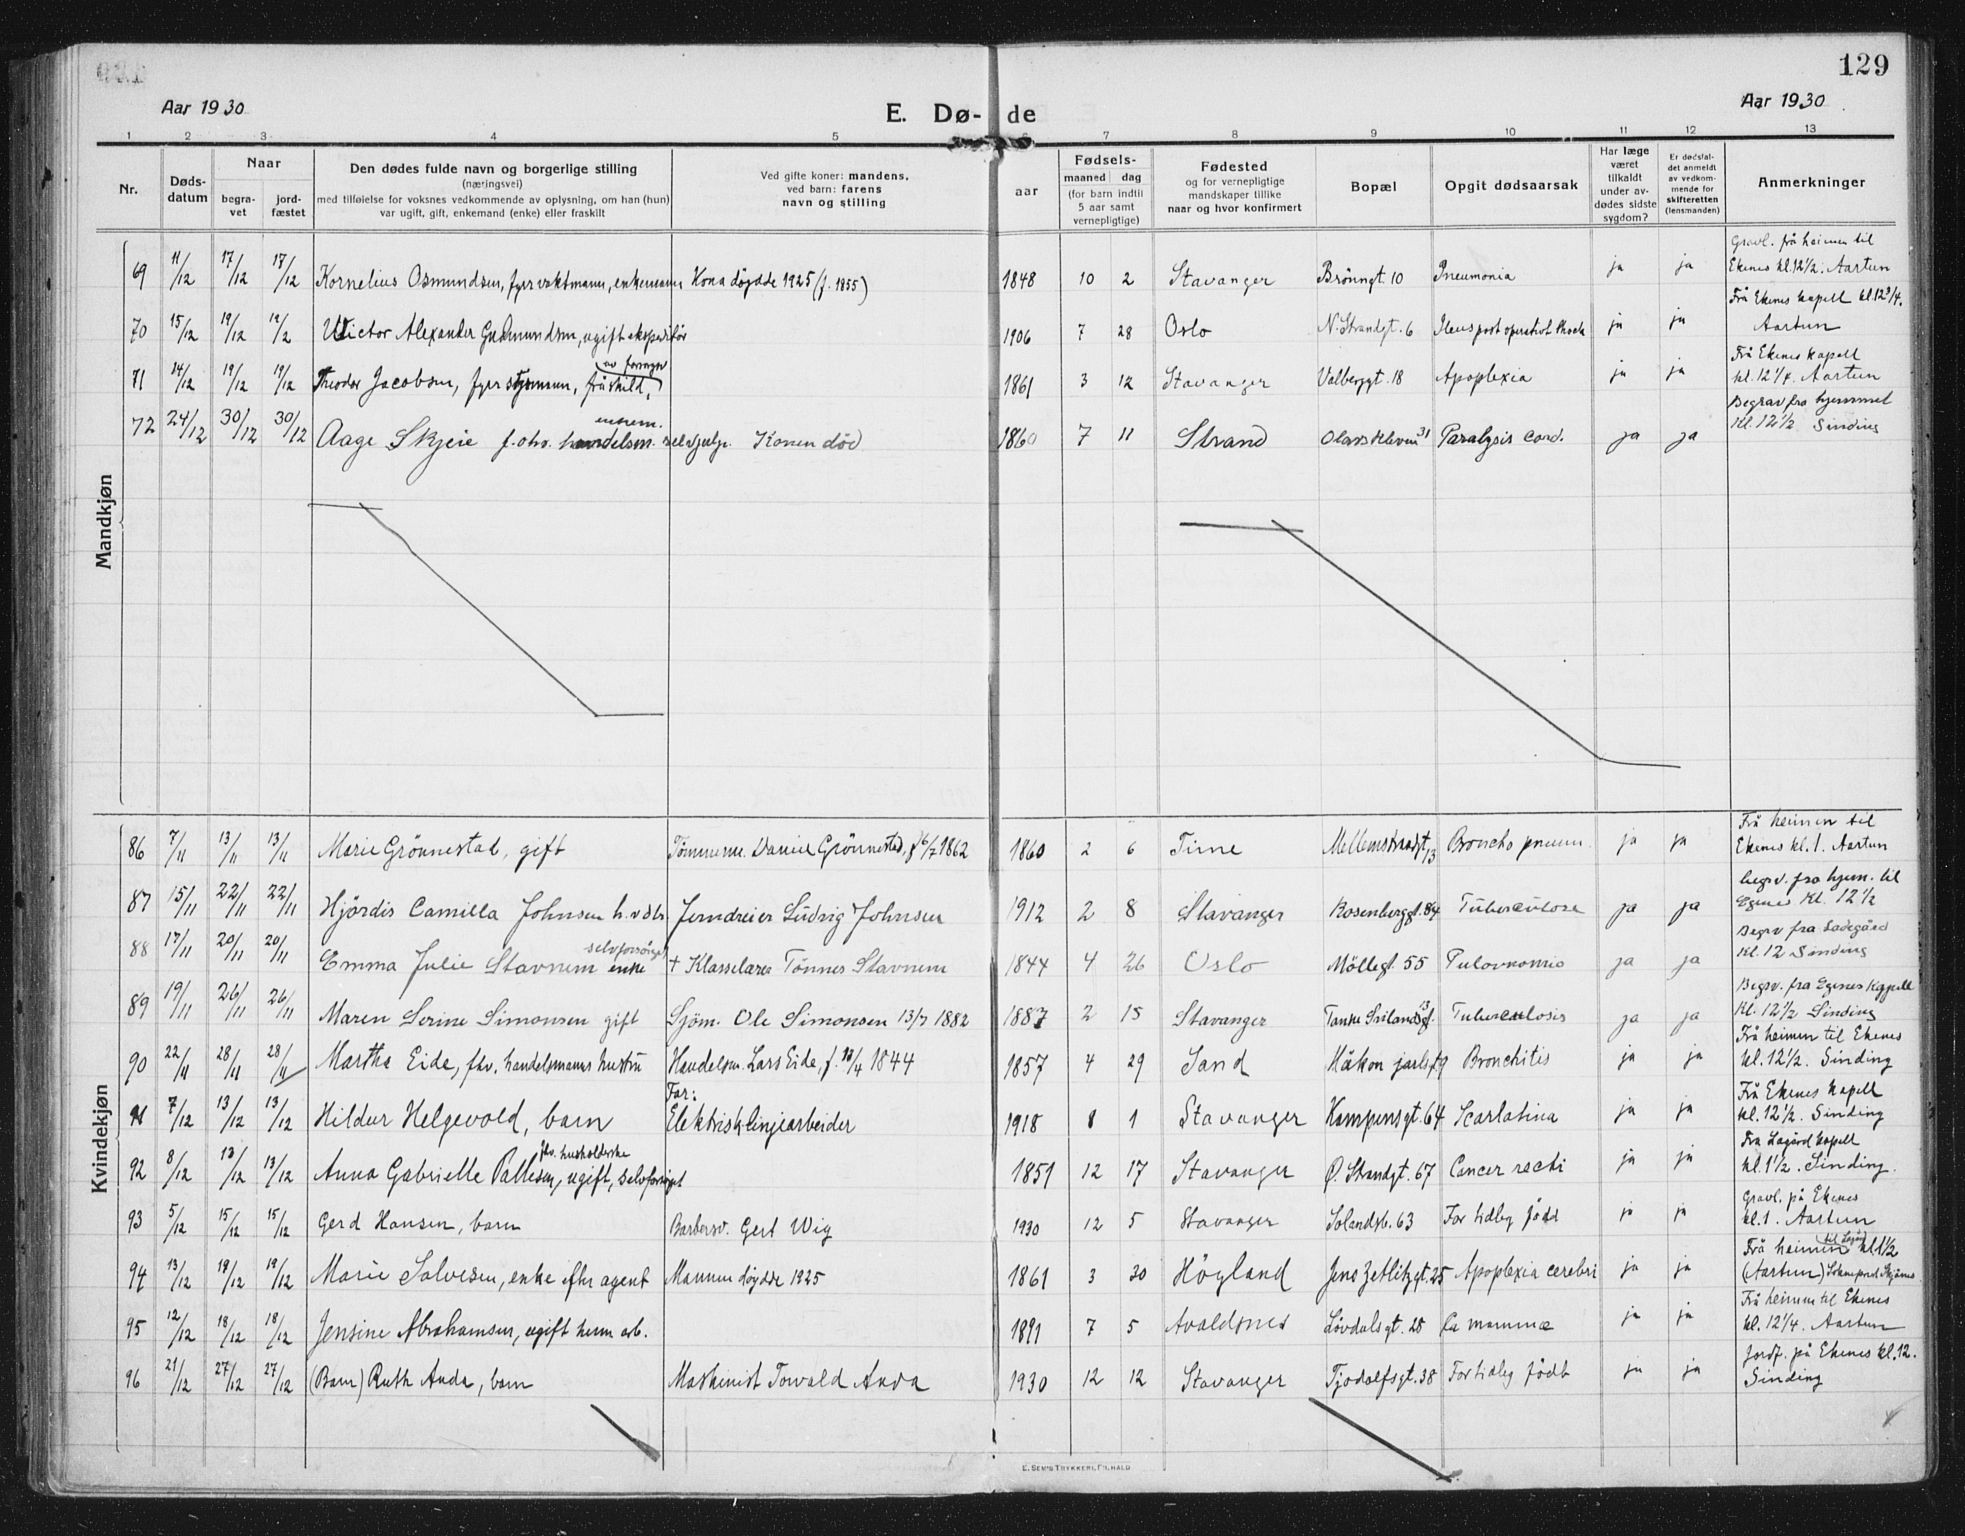 129
Aar 1930
E. Dø- de
Aar 1930
1 2 3 4 5 6 7 8 9 10 11 12 13
Nr.
Døds-
datum
Naar
begra-
vet
jord-
fæstet
Den dødes fulde navn og borgerlige stilling
(næringsvei)
med tilføielse for voksnes vedkommende av oplysning, om han (hun)
var ugift, gift, enkemand (enke) eller fraskilt
Ved gifte koner: mandens,
ved barn: farens
navn og stilling
aar
Fødsels-
maaned dag
(for barn indtil
5 aar samt
vernepligtige)
Fødested
og for vernepligtige
mandskaper tillike
naar og hvor konfirmert
Bopæl
Opgit dødsaarsak
Har læge
været
tilkaldt
under av-
dødes sidste
sygdom?
Er dødsfal-
det anmeldt
av vedkom-
mende for
skifteretten
(lensmanden)
Anmerkninger
Mandkjøn
69 11/12 17/12 17/12 Kornelius Osmundsen, fyrr vaktmann, enkemann Kona døydde 1925 (f. 1855) 1848 10 2 Stavanger Brönngt. 10 Pneumonia ja ja Gravl. frå heimen til
Ekenes kl. 12 1/2. Aartun
70 15/12 19/12 19/12 Victor Alexander Gudmundsen, ugift ekspeditør 1906 7 28 Oslo N. Strandgt. 6 Ileus post operativt shock ja ja Frå Ekenes kapell kl. 12 3/4.
Aartun
71 14/12 19/12 19/12 Theodor Jacobsen, fyrr styrmann, fråskild, av forsorgen 1861 3 12 Stavanger Valberggt. 18 Apoplexia ja ja Frå Ekenes kapell
kl. 12 1/4. Aartun
72 24/12 30/12 30/12 Aage Skjeie f.ohv. handelsm. enkem. selvhjulp. Konen död 1860 7 11 Strand Olavskleven 31 Paralysis cord. ja ja Begrav fra hjemmet
kl. 12 1/2 Sinding
Kvindekjøn
86 7/11 13/11 13/11 Marie Grönnestad, gift Tömmerm. Daniel Grönnestad, f. 6/7 1862 1860 2 6 Time Mellemstraedgt. 13 Broncho pneum. ja ja Frå heimen til
Ekenes kl. 1. Aartun
87 15/11 22/11 22/11 Hjördis Camilla Johnsen h.v.dtr. Jerndreier Ludvig Johnsen 1912 2 8 Stavanger Rosenberggt. 84 Tuberculose ja ja begrv. fra hjem. til
Egenes kl. 12 1/2
88 17/11 20/11 20/11 Emma Julie Stavnem enke selvforsörget + Klasselærer Tönnes Stavnem 1844 4 26 Oslo Möllegt. 55 ja ja Begrv fra Ladegård
kl. 12 Sinding
89 19/11 26/11 26/11 Maren Serine Simonsen gift Sjöm. Ole Simonsen 13/7 1882 1887 2 15 Stavanger Tanke Svilandsgt. 13 Tuberculosis ja ja Begrv. fra Egenes Kapell
kl. 12 1/2 Sinding
90 22/11 28/11 28/11 Martha Eide, fhv. handelsmanns hustru Handelsm. Lars Eide, f. 13/4 1844 1857 4 29 Sand Håkon jarlsgt. 9 Bronchitis ja ja Frå heimen til Ekenes
kl. 12 1/2. Sinding
91 7/12 13/12 13/12 Hildur Helgevold, barn Far:
Elektrisk linjearbeider 1918 8 1 Stavanger Kampensgt. 64 Scarlatina ja ja Frå Ekenes kapell
kl. 12 1/2. Sinding
92 8/12 13/12 13/12 Anna Gabrielle Pallesen, fhv. husholderske ugift, selvforsörget 1851 12 17 Stavanger Ø. Strandgt. 67 Cancer recti ja ja Fra Lagård kapell
kl. 1 1/2. Sinding.
93 5/12 15/12 15/12 Gerd Hansen, barn Barbersv. Gert Wig 1930 12 5 Stavanger Solandsb. 63 For tidleg född ja ja Gravl. på Ekenes
kl. 1. Aartun
94 13/12 19/12 19/12 Marie Salvesen, enke efter agent Mannen döydde 1925 1861 3 30 Höyland Jens Zetlitzgt. 25 Apoplexia cerebri ja ja Frå heimen til Lagård kl. 1 1/2
(Aartun) Sokneprest Skjånes
95 12/12 18/12 18/12 Jensine Abrahamsen, ugift heim arb. 1891 7 5 Avaldsnes Lövdalsgt. 25 Ca mammæ ja ja Frå heimen til Ekenes
kl. 12 1/4. Aartun
96 21/12 27/12 27/12 (Barn) Ruth Anda, barn Maskinist Torvald Anda 1930 12 12 Stavanger Tjodolfsgt. 38 For tidleg födt ja ja Jordf. på Ekenes kl. 12.
Sinding
E. SEM'S TRYKKERI, FR.HALD